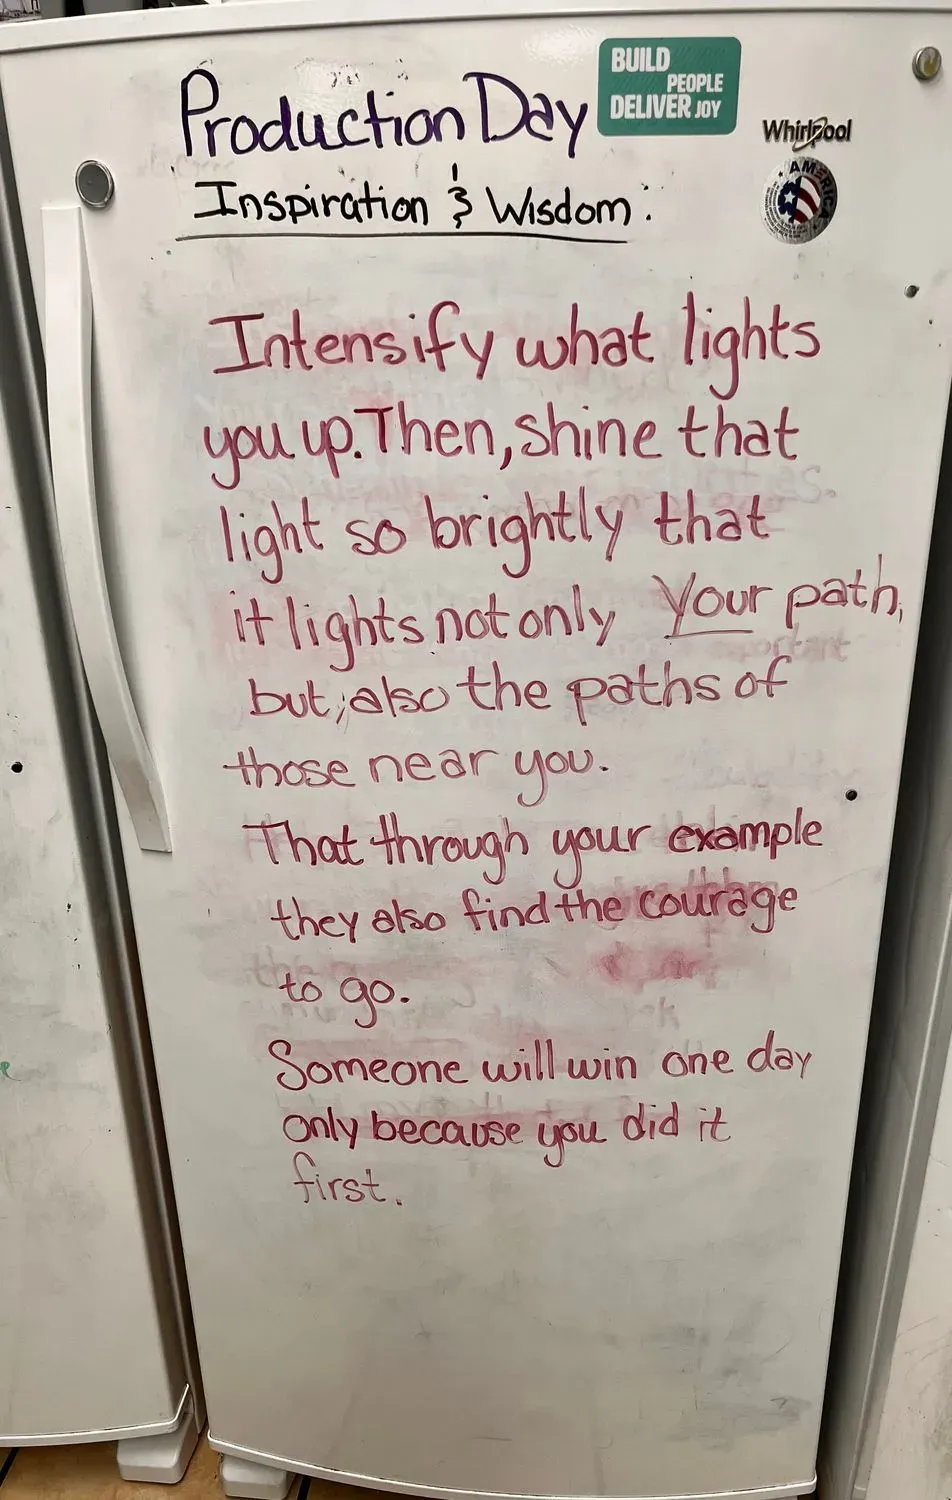 Production Day
BUILD
PEOPLE
DELIVER JOY
Whirlpool
AMERICA
Inspiration & Wisdom:
Intensify what lights
you up. Then, shine that
light so brightly that
it lights not only your path,
but, also the paths of
those near you.
That through your example
they also find the courage
to go.
Someone will win one day
only because you did it
first.